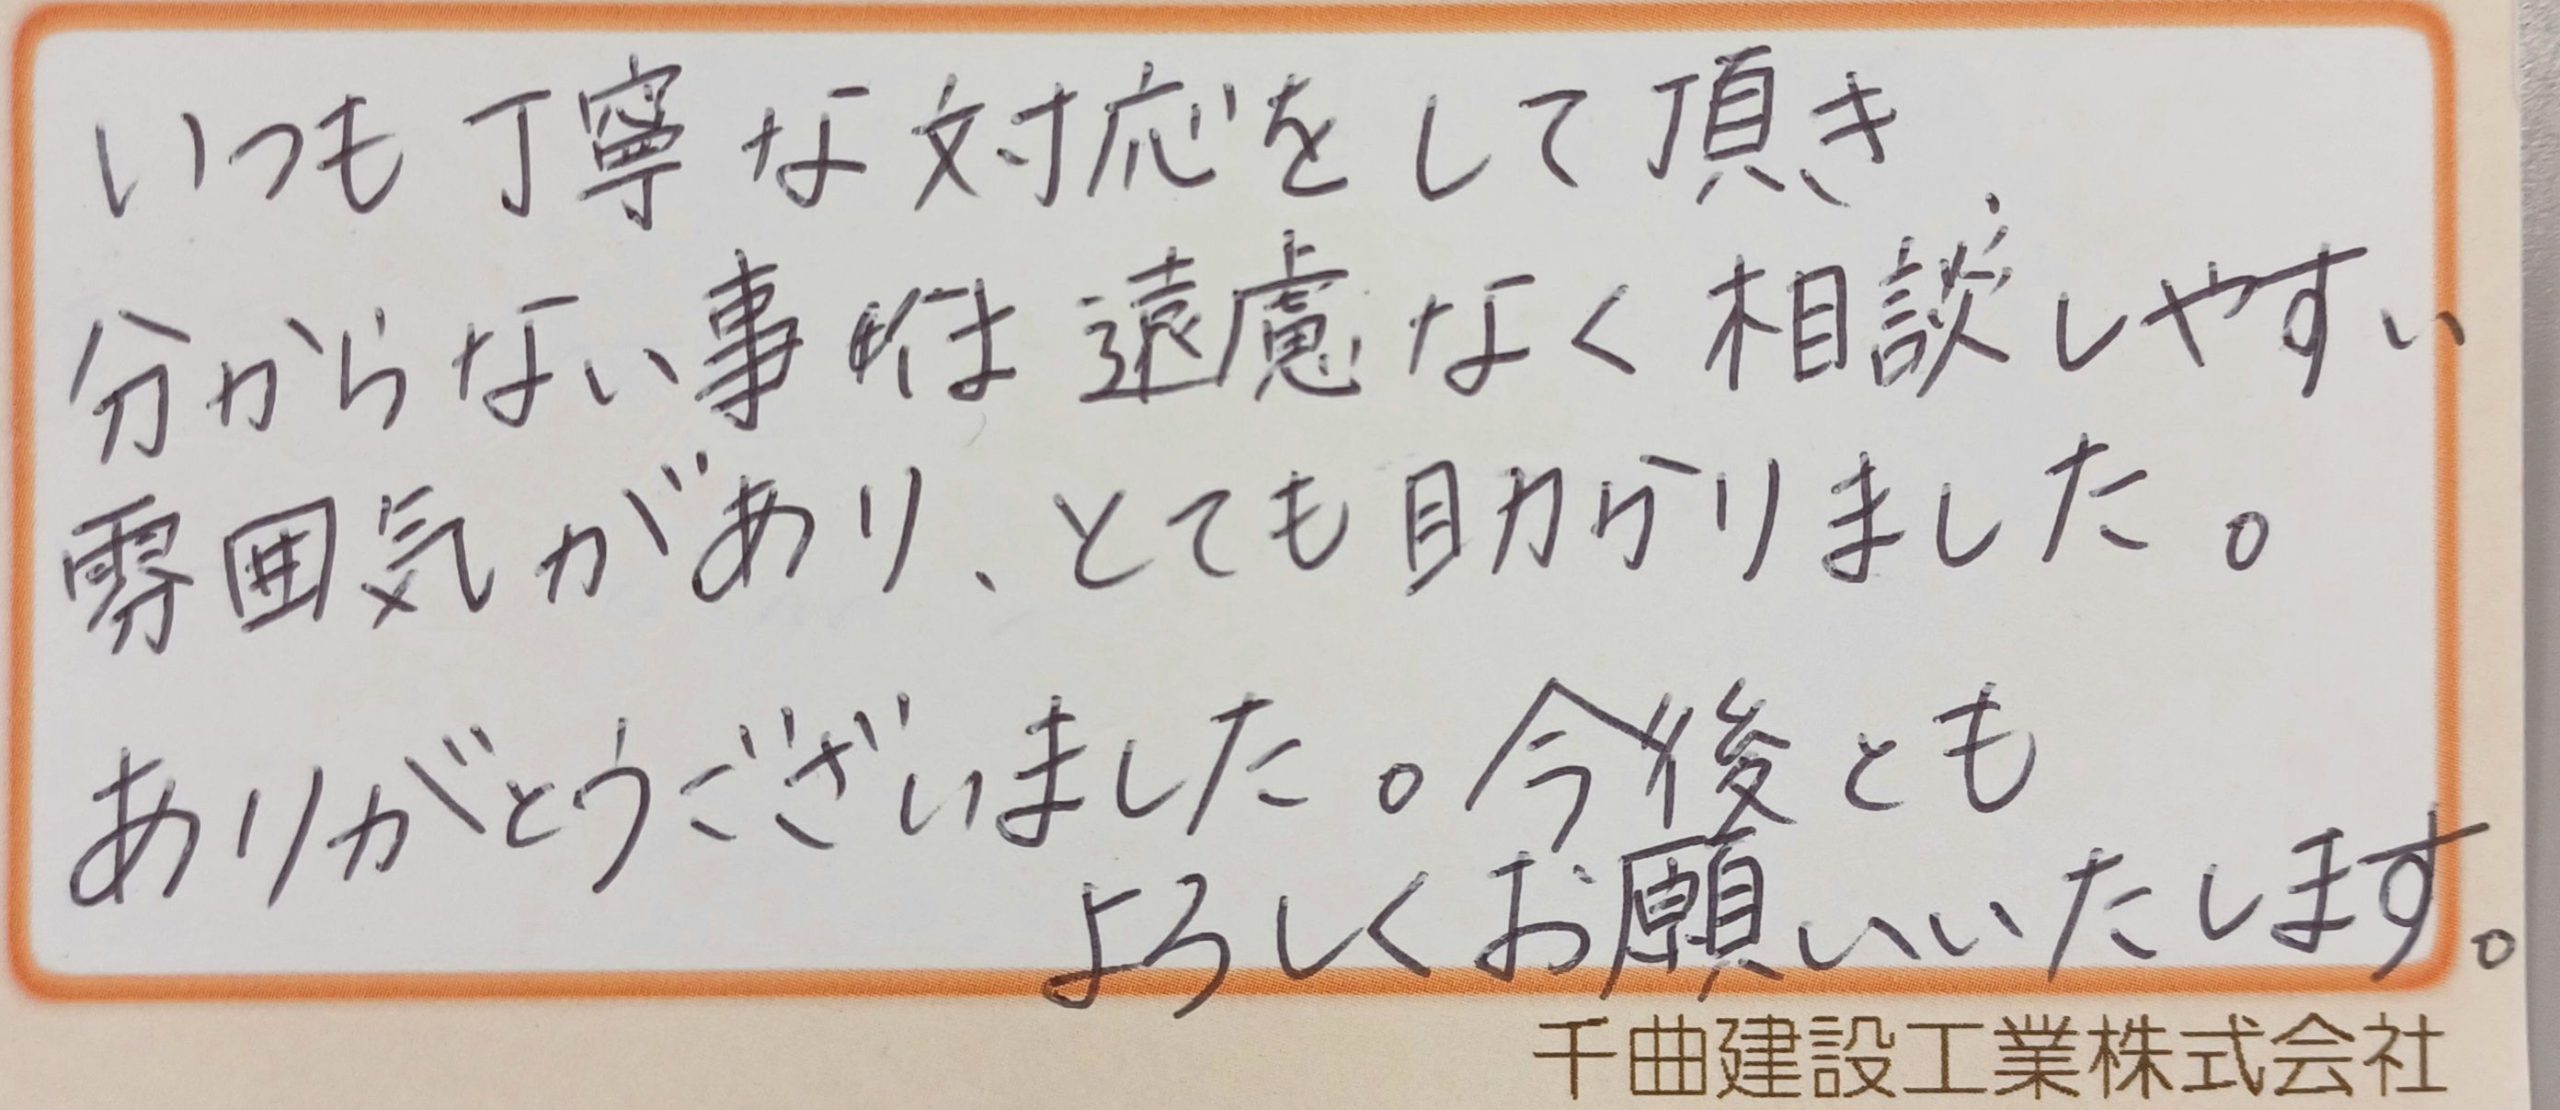 いつも丁寧な対応をして頂き、
分からない事は遠慮なく相談しやすい
雰囲気があり、とても助かりました。
ありがとうございました。今後とも
よろしくお願いいたします。
千曲建設工業株式会社